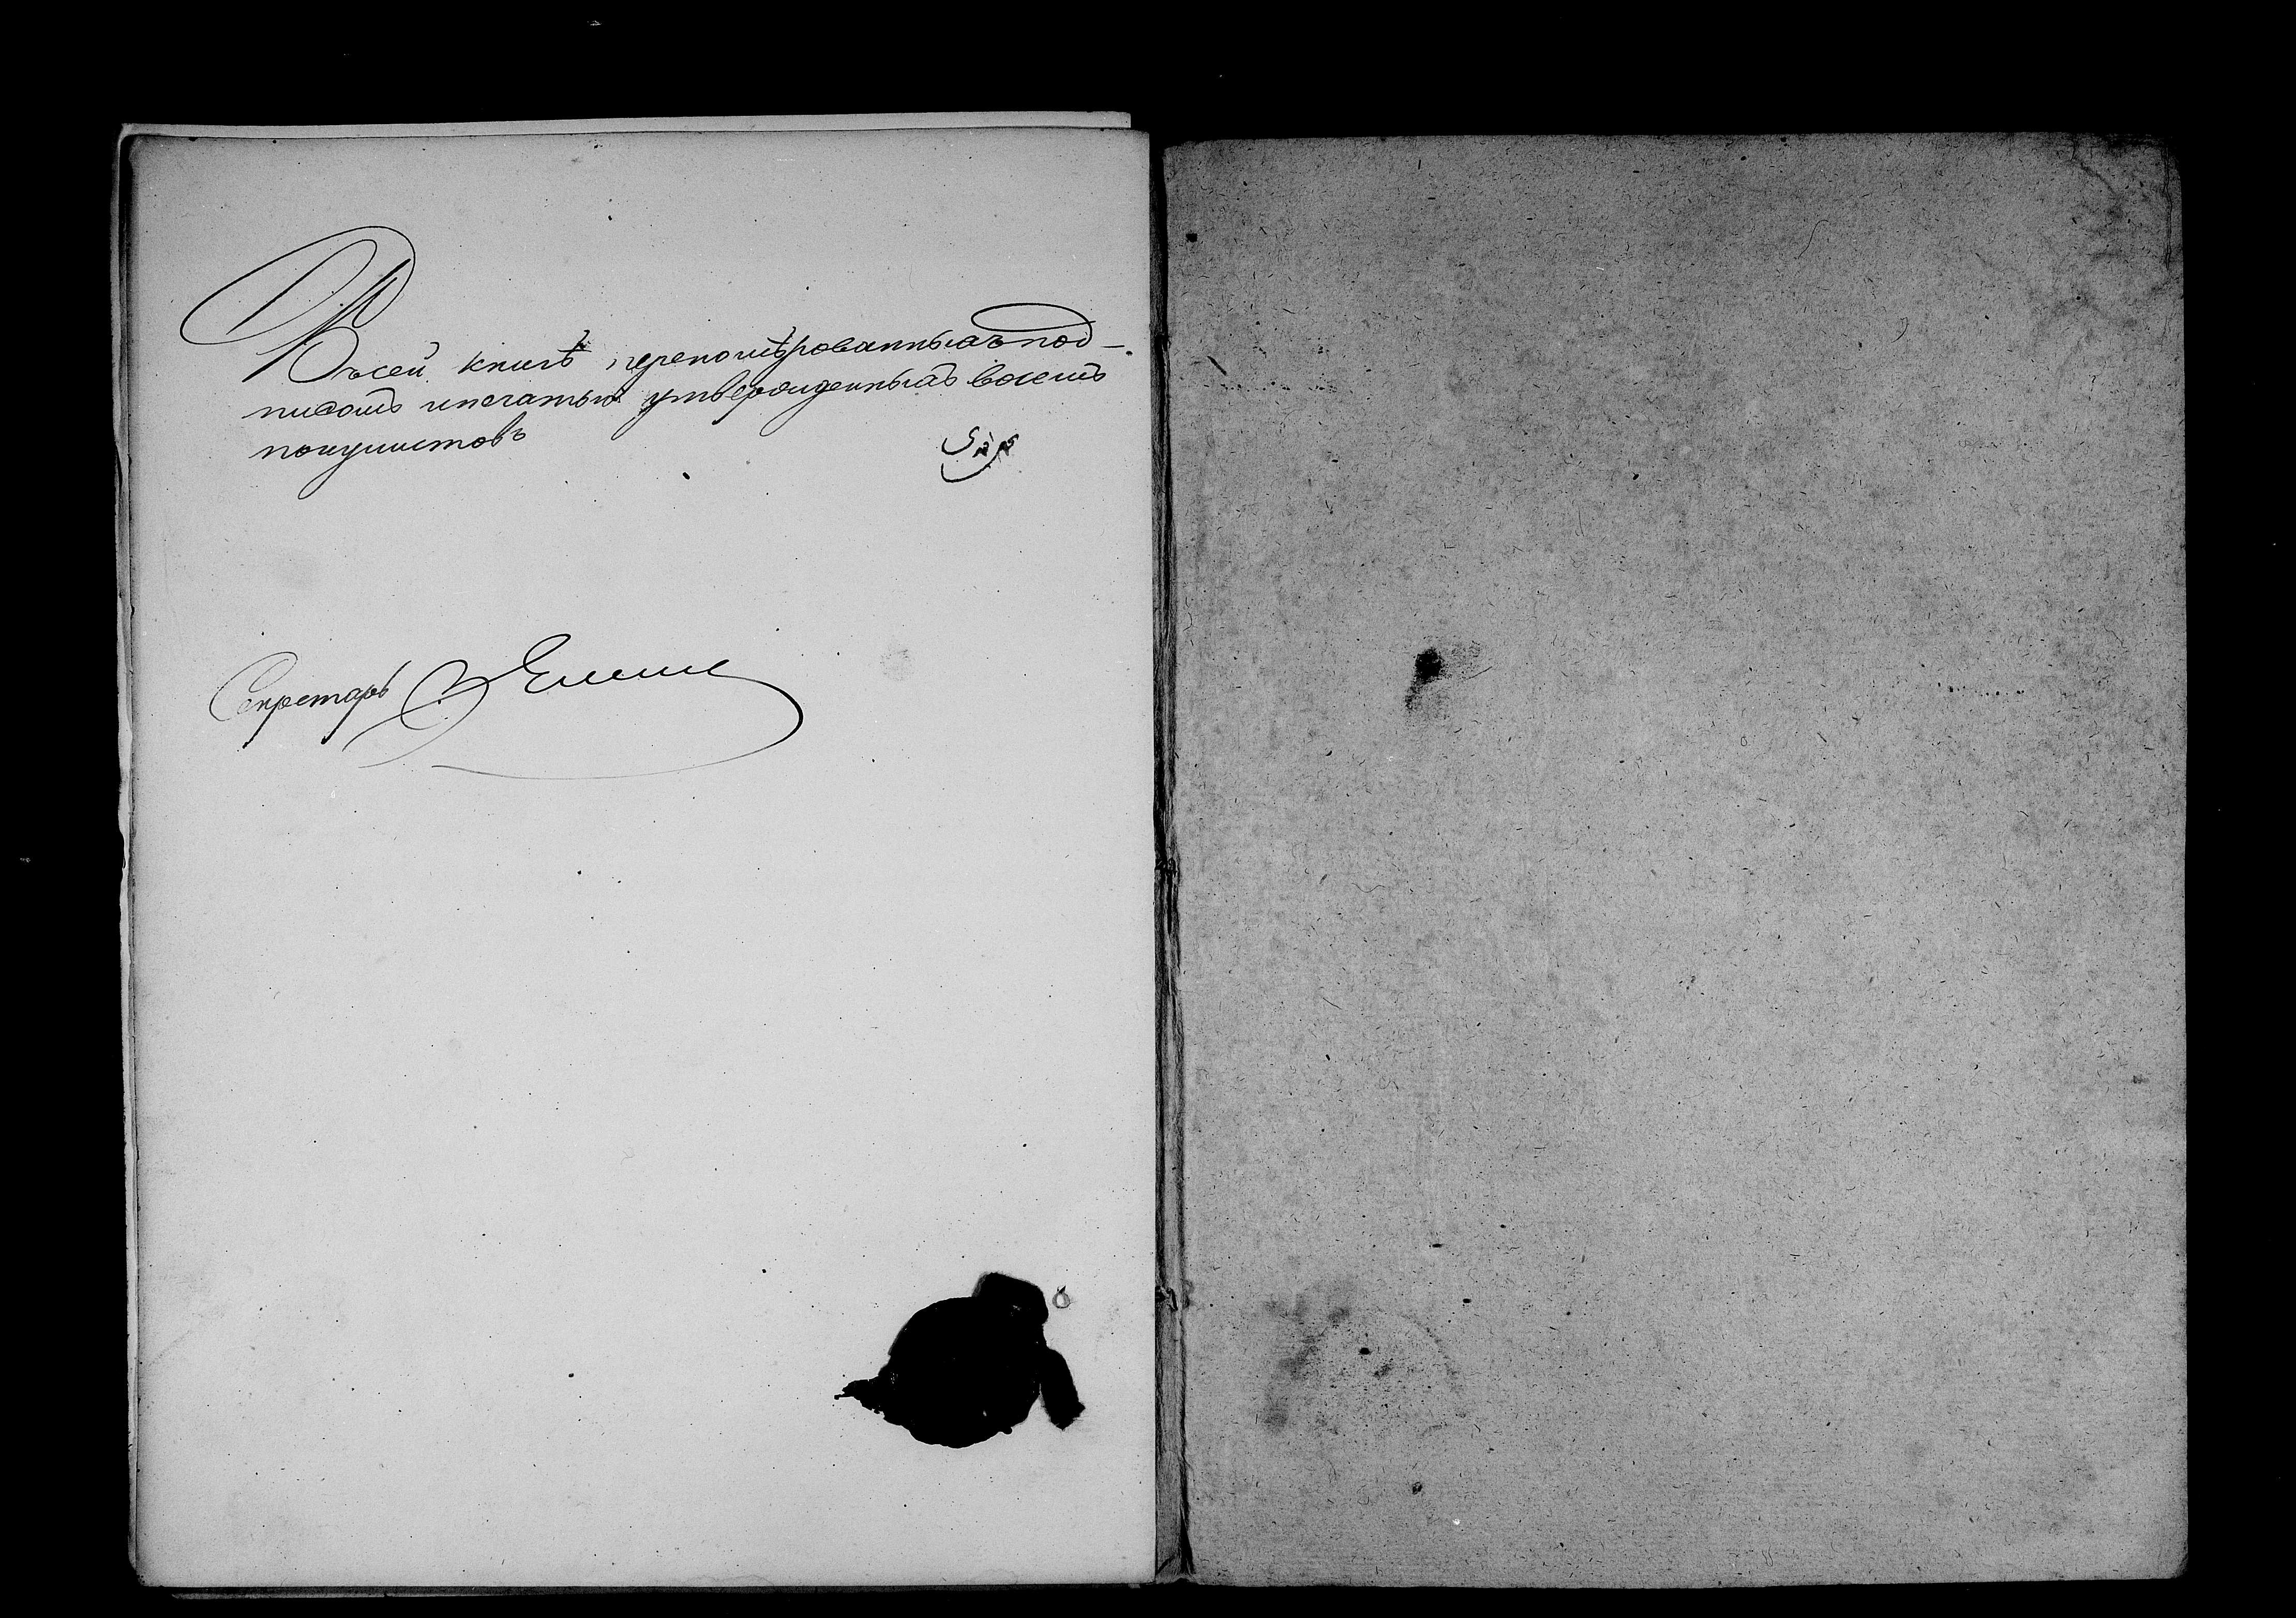 Въ сей книгѣ перенумѣрованныхъ под-
писомъ и печатью утвержденныхъ восемь
полулистовъ
Секретарь